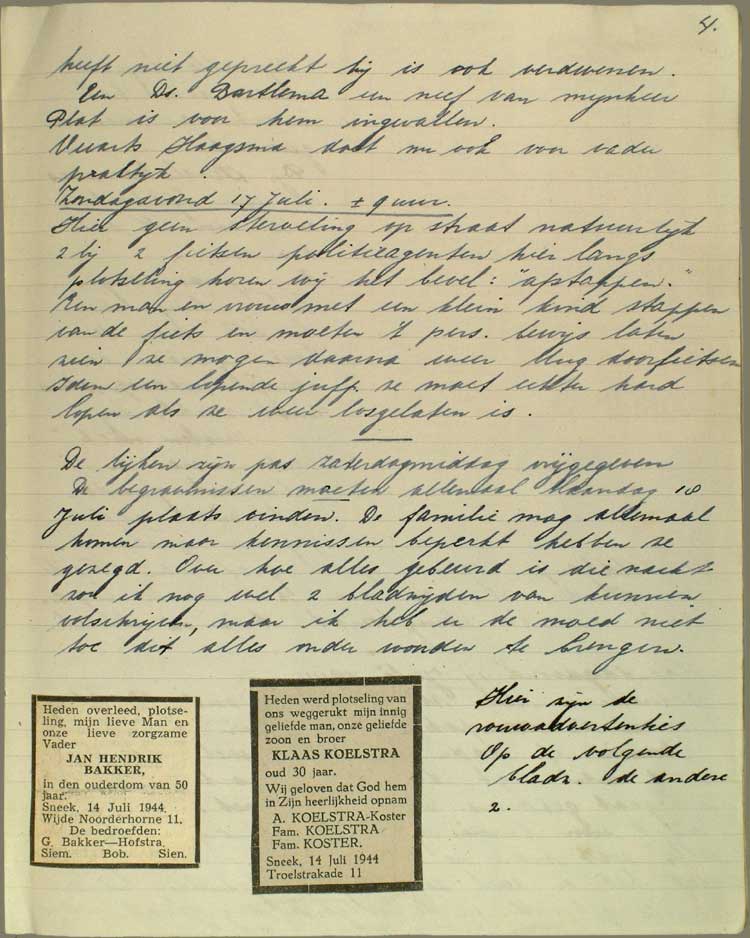 4.
heeft niet gepreekt hij is ook verdwenen.
Een Ds. Bartlema een neef van mynheer
Plat is voor hem ingevallen.
Haagsma doet nu ook voor vader
praktyk.
Zondagavond 17 Juli. ± 9 uur.
Hier geen sterveling op straat natuurlyk
2 bij 2 fietsen politieagenten hier langs
plotseling horen wij het bevel: "afstappen."
Een man en vrouw met een klein kind stappen
van de fiets en moeten 't pers. bewys laten
zien ze mogen daarna weer vlug doorfietsen
Idem een lopende juff. ze moet echter hard
lopen als ze weer losgelaten is.
De lijken zijn pas Zaterdagmiddag vrijgegeven
De begrafenissen moeten allemaal Maandag 18
Juli plaats vinden. De familie mag allemaal
komen maar kennissen beperkt hebben ze
gezegd. Over hoe alles gebeurd is die nacht
zou ik nog wel 2 bladzyden van kunnen
volschrijven, maar ik heb er de moed niet
toe dit alles onder woorden te brengen.
Heden overleed, plotse-
ling, mijn lieve Man en
onze lieve zorgzame
Vader
JAN HENDRIK
BAKKER,
in den ouderdom van 50
jaar.
Sneek, 14 Juli 1944.
Wijde Noorderhorne 11.
De bedroefden:
G. Bakker—Hofstra.
Siem. Bob. Sien.
Heden werd plotseling van
ons weggerukt mijn innig
geliefde man, onze geliefde
zoon en broer
KLAAS KOELSTRA
oud 30 jaar.
Wij geloven dat God hem
in Zijn heerlijkheid opnam
A. KOELSTRA-Koster
Fam. KOELSTRA
Fam. KOSTER.
Sneek, 14 Juli 1944
Troelstrakade 11
Hier zijn de
rouwadvertenties
Op de volgende
bladz. de andere
2.